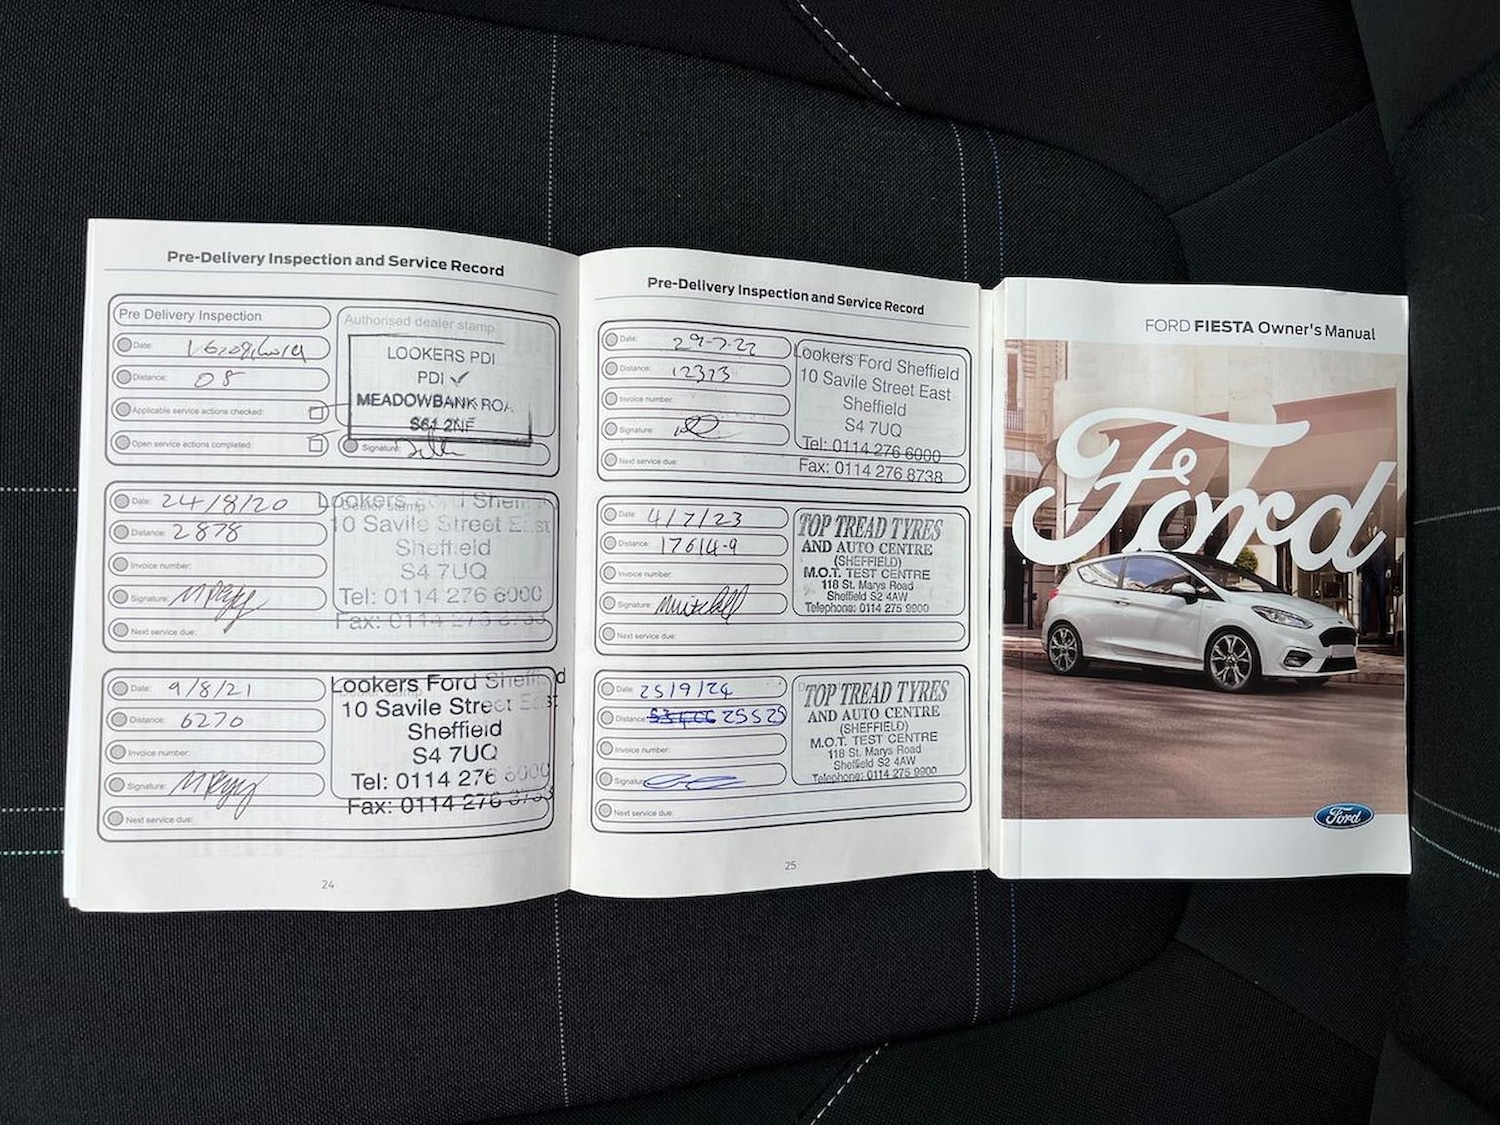 Pre-Delivery Inspection and Service Record
Pre Delivery Inspection
Authorised dealer stamp
Date:
Distance: 08
Applicable service actions checked:
Open service actions completed:
LOOKERS PDI
PDI ✓
MEADOWBANK ROA
S61 2NF
Signature:
Date: 24/8/20
Distance: 2878
Invoice number:
Signature:
Next service due:
Dealer stamp
Lookers Ford Shef
10 Savile Street East
Sheffield
S4 7UQ
Tel: 0114 276 6000
Fax: 0114 276 8738
Date: 9/8/21
Distance: 6270
Invoice number:
Signature:
Next service due:
Lookers Ford Sheffield
10 Savile Street East
Sheffield
S4 7UQ
Tel: 0114 276 6000
Fax: 0114 276 8738
24
Pre-Delivery Inspection and Service Record
Date: 29-7-22
Distance: 12373
Invoice number:
Signature:
Next service due:
Lookers Ford Sheffield
10 Savile Street East
Sheffield
S4 7UQ
Tel: 0114 276 6000
Fax: 0114 276 8738
Date: 4/7/23
Distance: 17614-9
Invoice number:
Signature: Mitchell
Next service due:
TOP TREAD TYRES
AND AUTO CENTRE
(SHEFFIELD)
M.O.T. TEST CENTRE
118 St. Marys Road
Sheffield S2 4AW
Telephone: 0114 275 9900
Date: 25/9/24
Distance: 25525
Invoice number:
Signature:
Next service due:
TOP TREAD TYRES
AND AUTO CENTRE
(SHEFFIELD)
M.O.T. TEST CENTRE
118 St. Marys Road
Sheffield S2 4AW
Telephone: 0114 275 9900
25
FORD FIESTA Owner's Manual
Ford
Ford